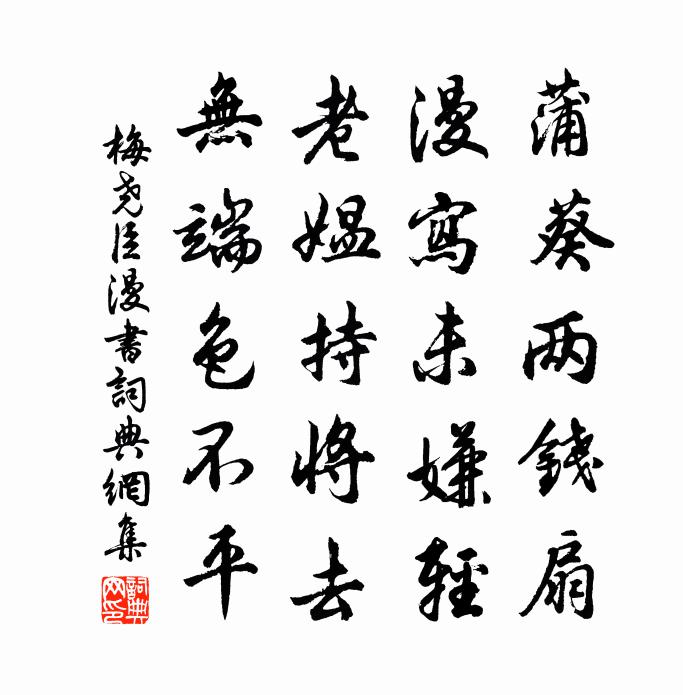 蒲葵两錢扇
漫寫未嫌輕
老媼持將去
無端色不平
梅尧臣漫書詞典網集
詞典网印